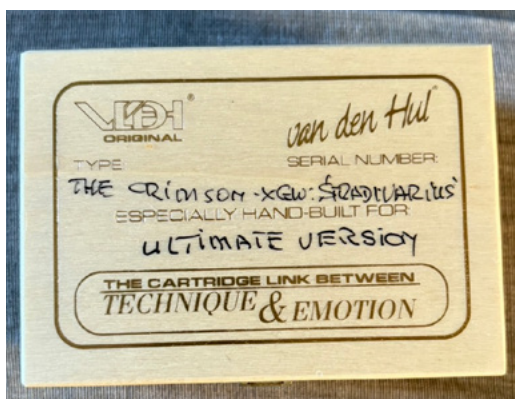 VDH® van den Hul®
ORIGINAL
TYPE: SERIAL NUMBER:
THE CRIMSON-XGW: 'STRADIVARIUS'
ESPECIALLY HAND-BUILT FOR:
ULTIMATE VERSION
THE CARTRIDGE LINK BETWEEN
TECHNIQUE & EMOTION